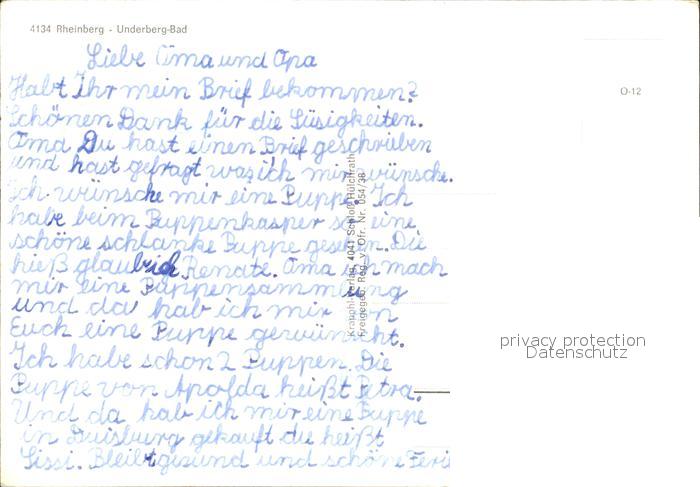 4134 Rheinberg - Underberg-Bad
O-12
Liebe Oma und Opa
Habt Ihr mein Brief bekommen?
Schönen Dank für die Süsigkeiten.
Oma Du hast einen Brief geschriben
und hast gefragt was ich mir wünsche.
Ich wünsche mir eine Puppe. Ich
habe beim Puppenkasper so eine
schöne schlanke Puppe gesehen. Die
hieß glaub ich Renate. Oma ich mach
mir eine Puppensammlung
und da hab ich mir von
Euch eine Puppe gewünscht.
Ich habe schon 2 Puppen. Die
Puppe von Apolda heißt Petra.
Und da hab ich mir eine Puppe
in Duisburg gekauft die heißt
Sissi. Bleibt gesund und schöne Feri
Krapohl-Verlag, 4041 Schloß Hülchrath
Freigegeb. Reg. v. Ofr. Nr. 054/38
privacy protection
Datenschutz